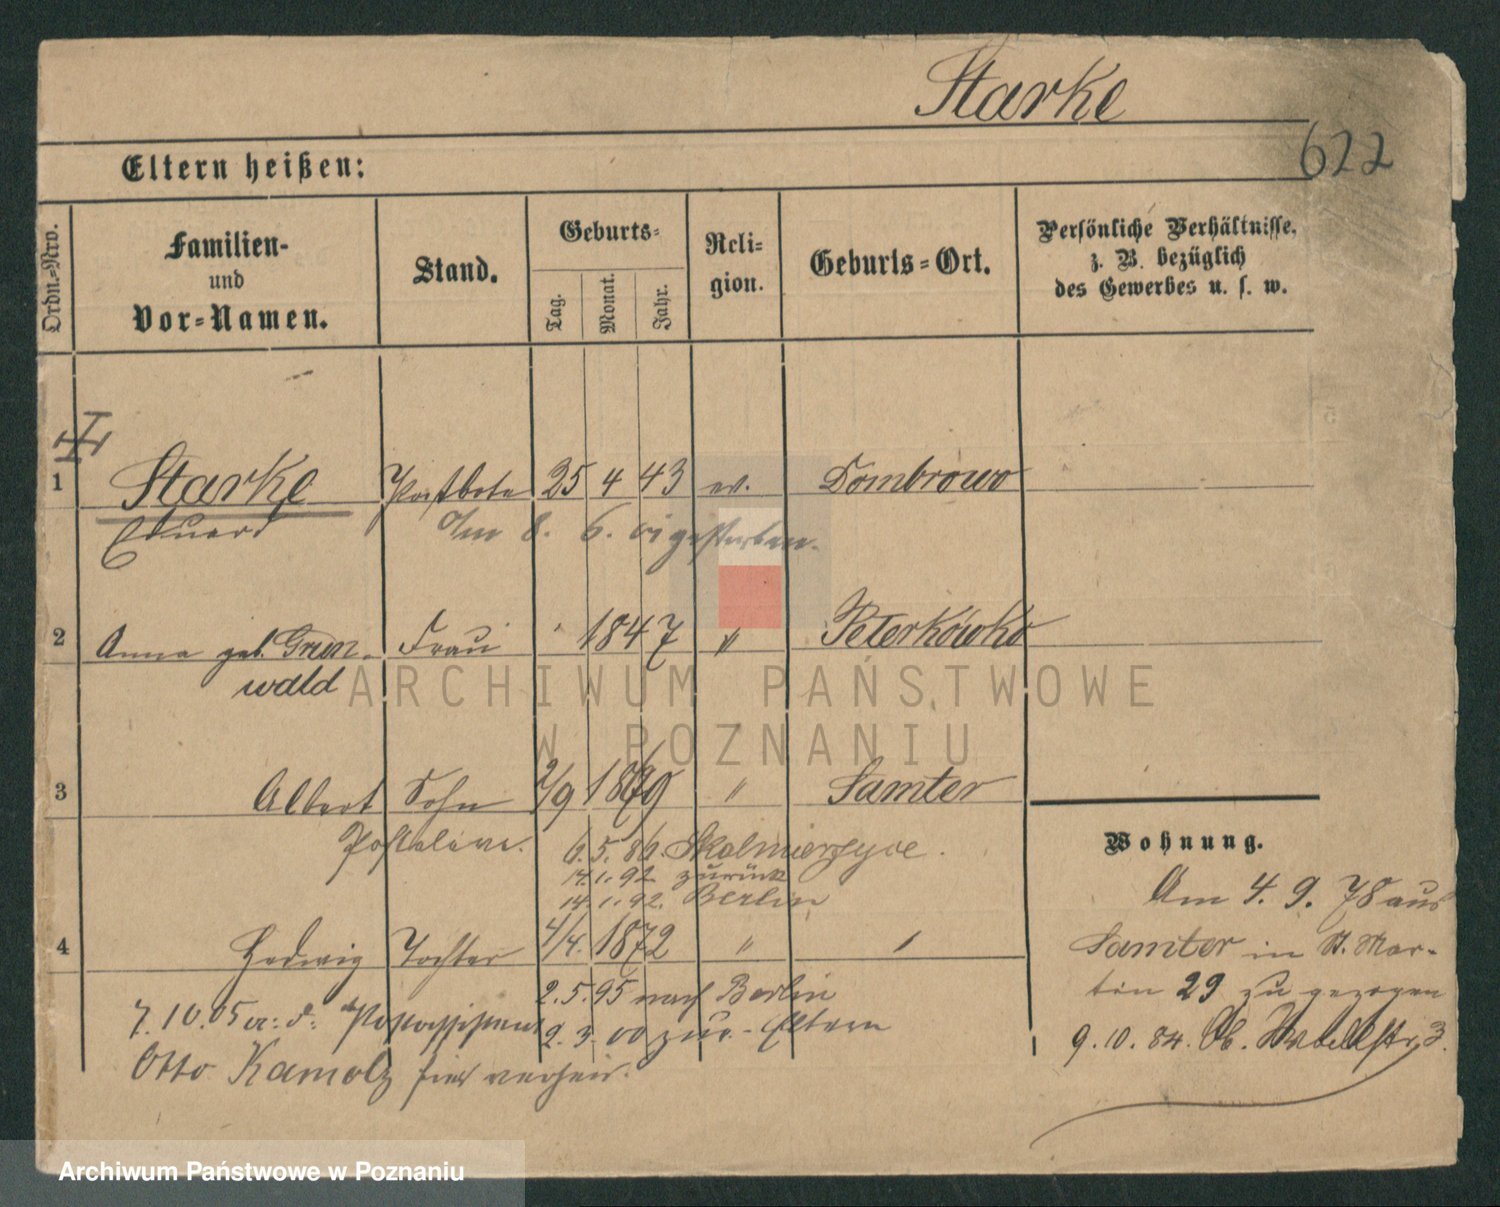 Starke
622
Eltern heißen:
Ordn.-Nro.
Familien-
und
Vor-Namen.
Stand.
Geburts-
Tag.
Monat.
Jahr.
Reli-
gion.
Geburts-Ort.
Persönliche Verhältnisse,
z. B. bezüglich
des Gewerbes u. s. w.
1 Starke Postbote 25 4 43 ev. Dombrowo
Eduard Am 8. 6. gestorben.
2 Anna geb. Grun- Frau 1847 " Peterkowko
wald
ARCHIWUM PAŃSTWOWE
W POZNANIU
3 Albert Sohn 2/9 1869 " Samter
6.5.86. Skalmierzyce.
14.1.92 zurück
14.1.92. Berlin
4 Hedwig Tochter 4/4. 1872 " "
2.5.95 nach Berlin
7.10.05 Postassistent
2.3.00 zur. Eltern
Otto Kamolz hier verheir.
Wohnung.
Am 4. 9. 78 aus
Samter in St. Mar-
tin 29 zu gezogen
9.10.84. 3.
Archiwum Państwowe w Poznaniu